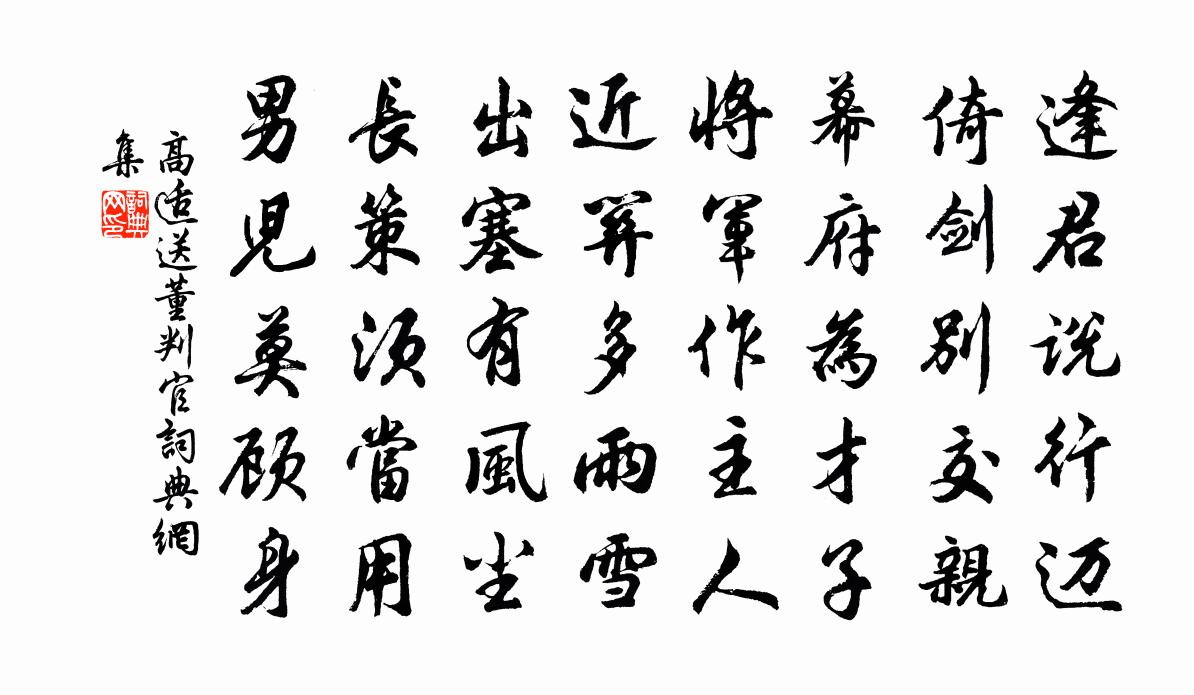 逢君说行迈
倚剑别交親
幕府為才子
將軍作主人
近關多雨雪
出塞有風尘
長策須當用
男児莫顧身
高適送董判官詞典網
集
詞典
网印